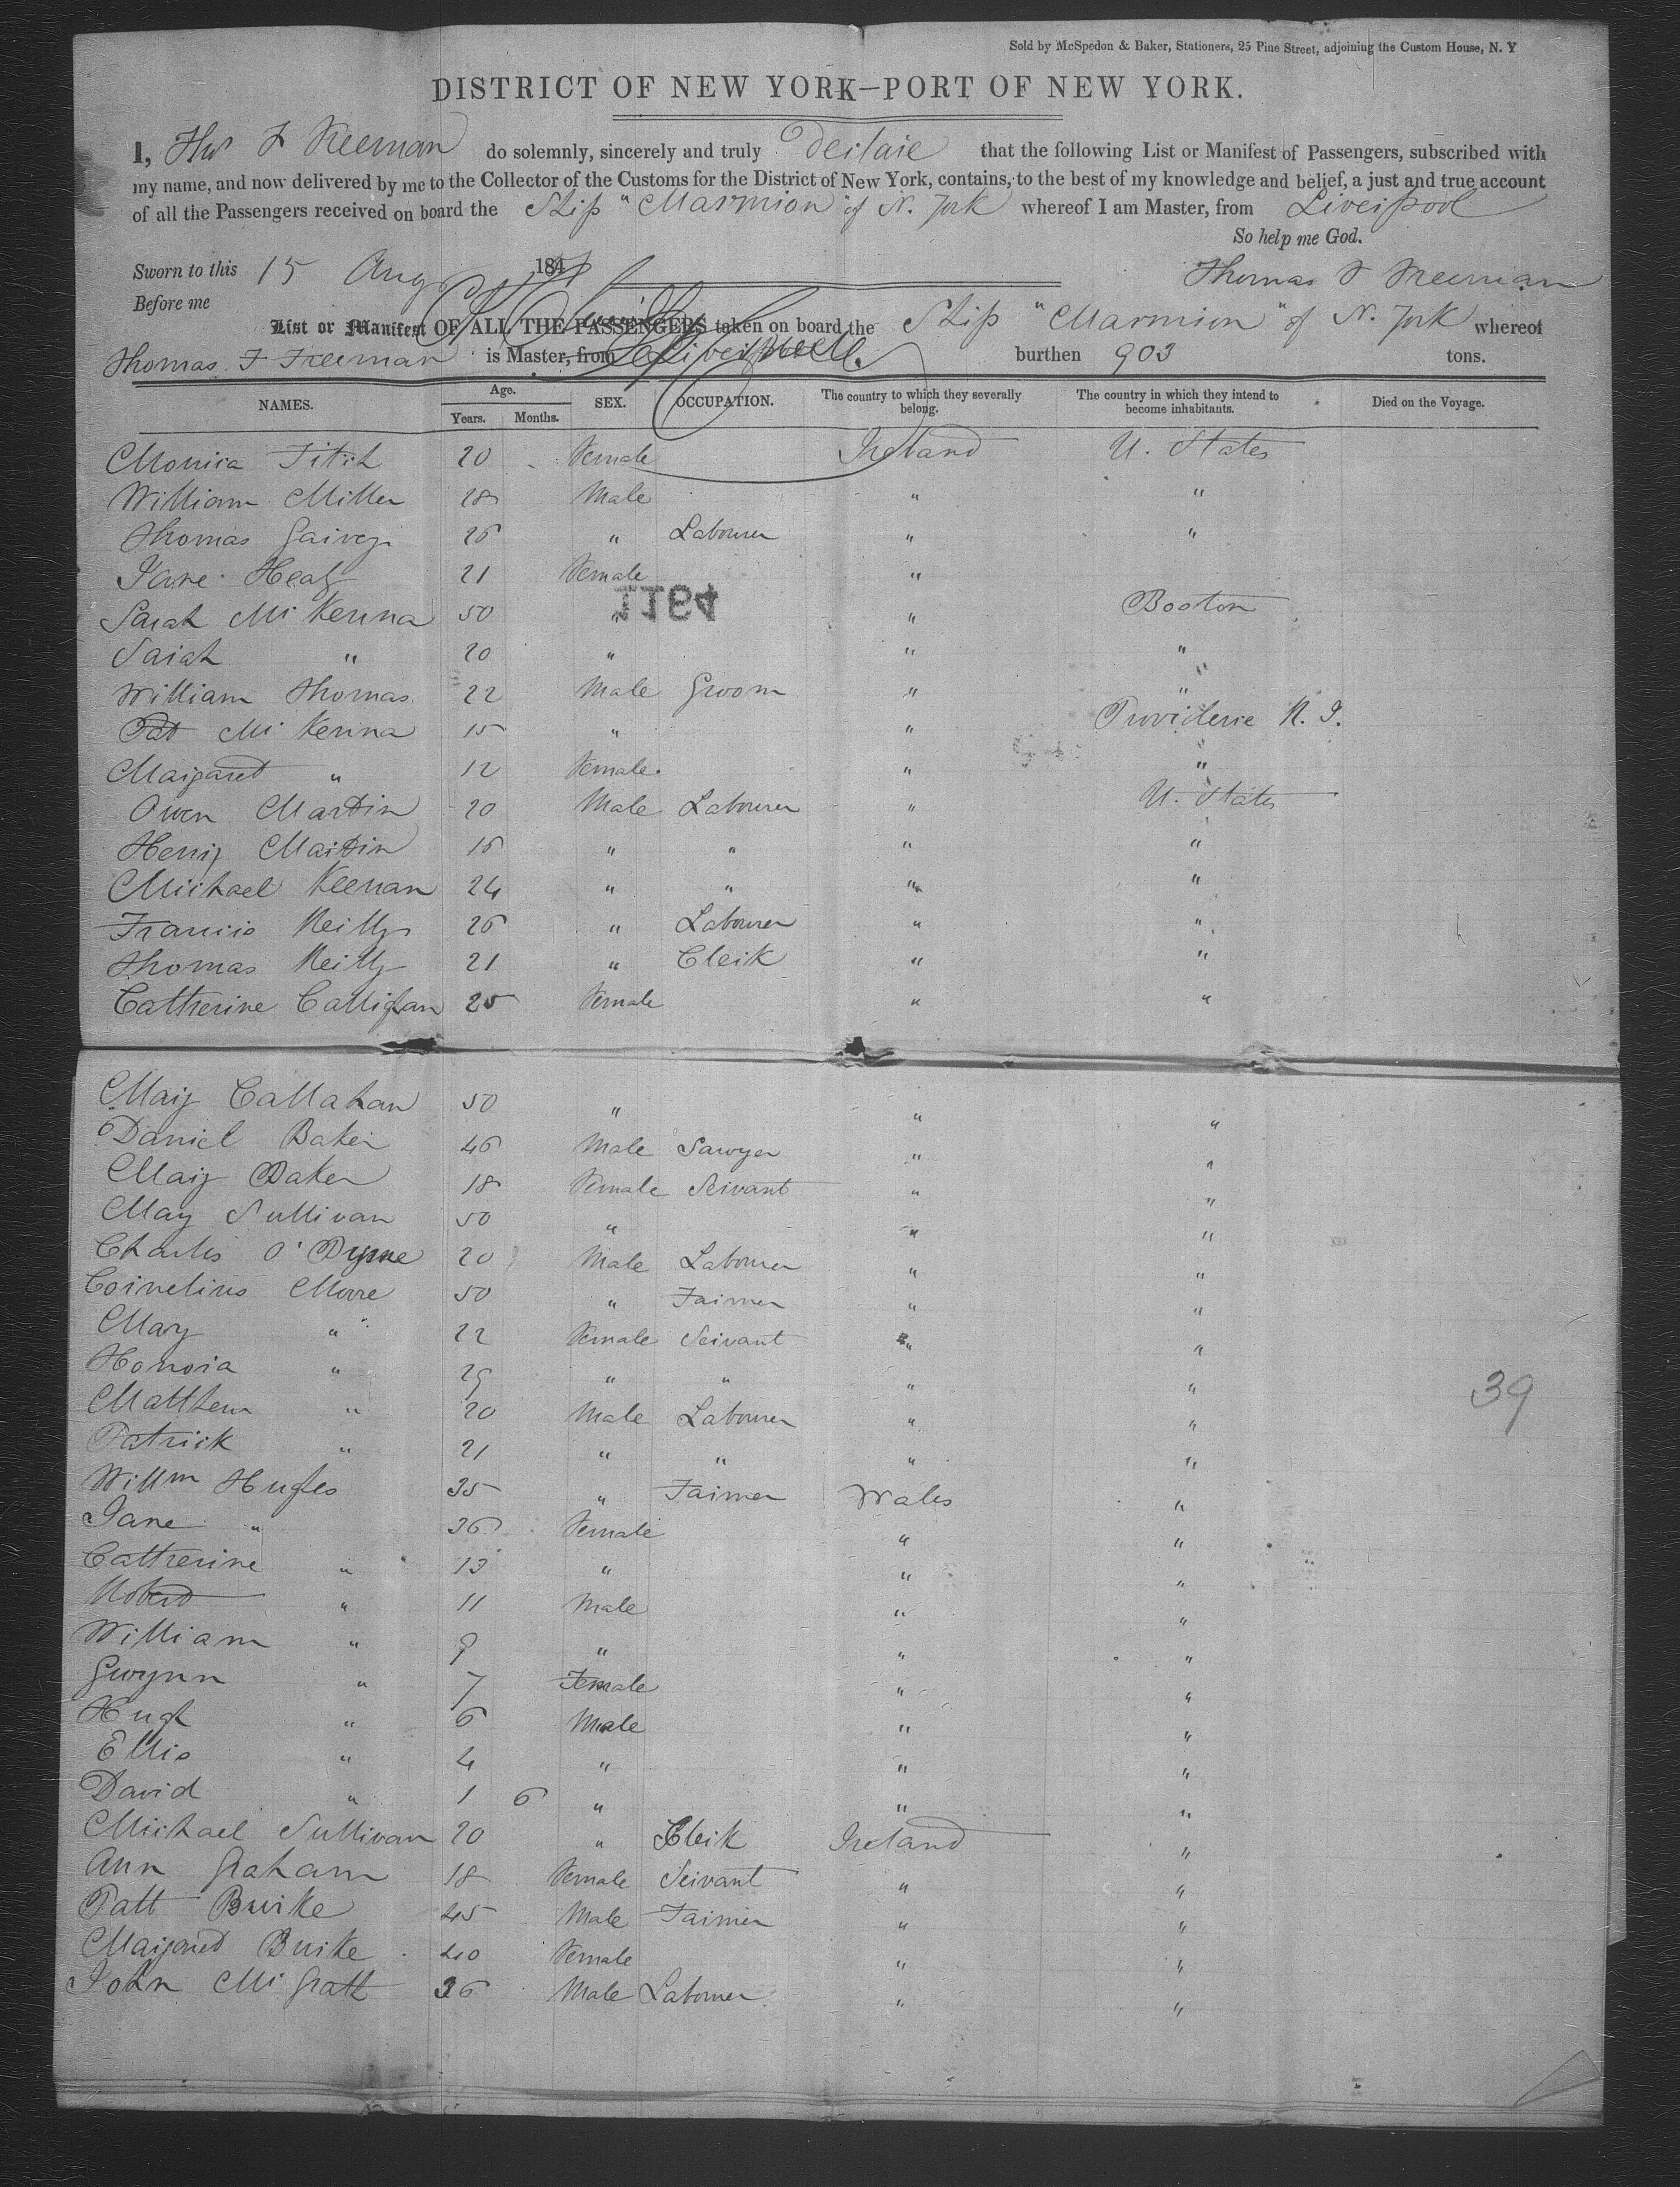 Sold by McSpedon & Baker, Stationers, 25 Pine Street, adjoining the Custom House, N. Y
DISTRICT OF NEW YORK—PORT OF NEW YORK.
I, Thos F Freeman do solemnly, sincerely and truly declare that the following List or Manifest of Passengers, subscribed with
my name, and now delivered by me to the Collector of the Customs for the District of New York, contains, to the best of my knowledge and belief, a just and true account
of all the Passengers received on board the Ship "Marmion" of N. York whereof I am Master, from Liverpool
So help me God.
Sworn to this 15 Aug 184
Thomas F Freeman
Before me
List or Manifest OF ALL THE PASSENGERS taken on board the Ship "Marmion" of N. York whereof
Thomas F Freeman is Master, from Liverpool burthen 903 tons.
NAMES. Age. Years. Months. SEX. OCCUPATION. The country to which they severally belong. The country in which they intend to become inhabitants. Died on the Voyage.
Monica Fitch 20 Female Ireland U. States
William Miller 28 Male " "
Thomas Garvey 26 " Labourer " "
Jane Healy 21 Female "
1164
Sarah McKenna 50 " " Boston
Sarah " 20 " " "
William Thomas 22 Male Groom " "
Pat McKenna 15 " " Providence R. I.
Margaret " 12 Female " "
Owen Martin 20 Male Labourer " U. States
Henry Martin 16 " " " "
Michael Keenan 24 " " " "
Francis Reilly 26 " Labourer " "
Thomas Reilly 21 " Clerk " "
Catherine Callighan 25 Female " "
Mary Callahan 50 " " "
Daniel Baker 46 Male Sawyer " "
Mary Baker 18 Female Servant " "
Mary Sullivan 50 " " "
Charles O'Byrne 20 Male Labourer " "
Cornelius Moore 50 " Farmer " "
Mary " 22 Female Servant " "
Honora " 29 " " " "
39
Matthew " 20 Male Labourer " "
Patrick " 21 " " " "
Willm Hughes 35 " Farmer Wales "
Jane " 36 Female " "
Catherine " 13 " " "
Robert " 11 Male " "
William " 9 " " "
Gwynn " 7 Female " "
Hugh " 6 Male " "
Ellis " 4 " " "
David " 1 6 " " "
Michael Sullivan 20 " Clerk Ireland "
Ann Graham 18 Female Servant " "
Patt Burke 45 Male Farmer " "
Margaret Burke 40 Female " "
John McGrath 36 Male Labourer " "